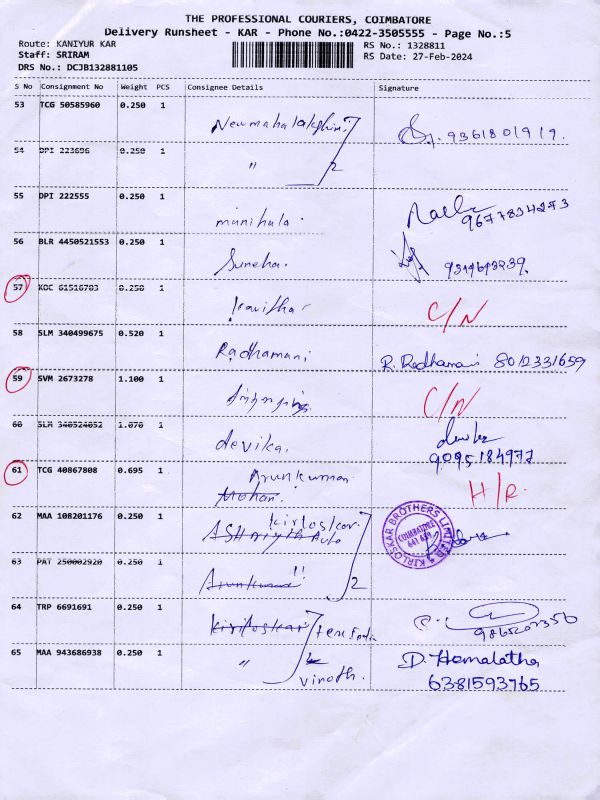 THE PROFESSIONAL COURIERS, COIMBATORE
Delivery Runsheet - KAR - Phone No.:0422-3505555 - Page No.:5
Route: KANIYUR KAR
RS No.: 1328811
Staff: SRIRAM
RS Date: 27-Feb-2024
DRS No.: DCJB132881105
S No Consignment No Weight PCS Consignee Details Signature
53 TCG 50585960 0.250 1
9361801919.
54 DPI 223696 0.250 1 " 2
55 DPI 222555 0.250 1 manihala.
9677834273
56 BLR 4450521553 0.250 1 Suneha.
57 KOC 61516703 0.250 1 Kavitha C/N
58 SLM 340499675 0.520 1 Radhamani R. Radhamani 8012331659
59 SVM 2673278 1.100 1 C/N
60 SLM 340524052 1.070 1 devika.
9095184977
61 TCG 40867808 0.695 1 Arunkumar H/R
Mohan.
62 MAA 108201176 0.250 1 Kirloskar
Auto
KIRLOSKAR BROTHERS LIMITED
COIMBATORE
641 659
63 PAT 250002920 0.250 1 Arunkumar " 2
64 TRP 6691691 0.250 1 Kirloskar
65 MAA 943686938 0.250 1 " vinoth. D. Hemalatha
6381593765